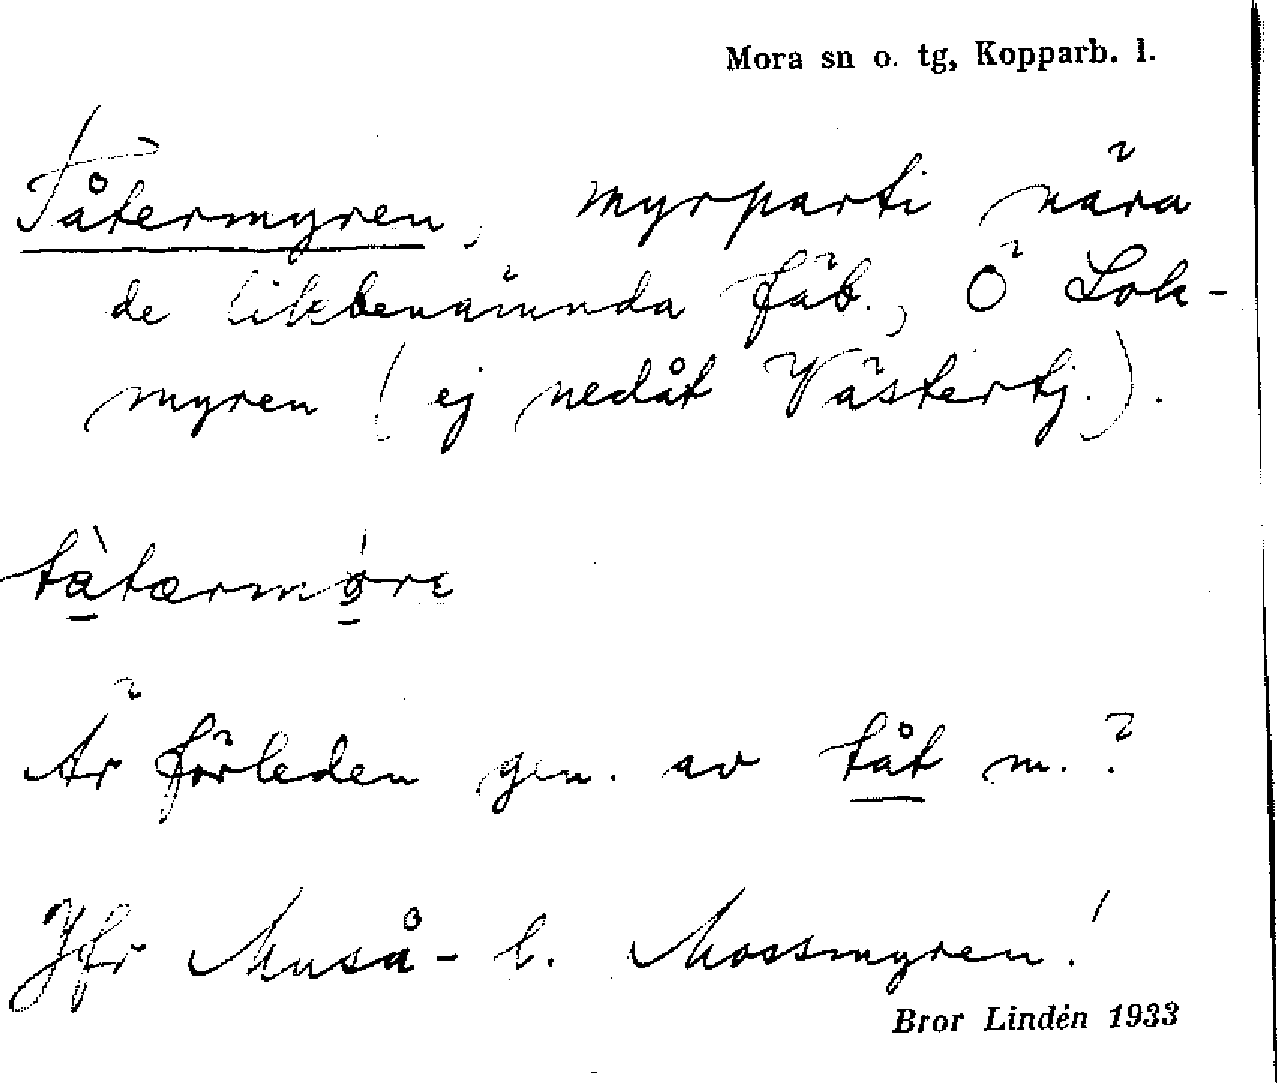 Mora sn o. tg, Kopparb. l.
Tåtermyren, myrparti nära
de likbenämnda fäb., Ö Lok-
myren (ej nedåt Västertj.).
tàtærmǿrɛ
Är förleden gen. av tåt m.?
Jfr Muså- l. Mossmyren!
Bror Lindén 1933